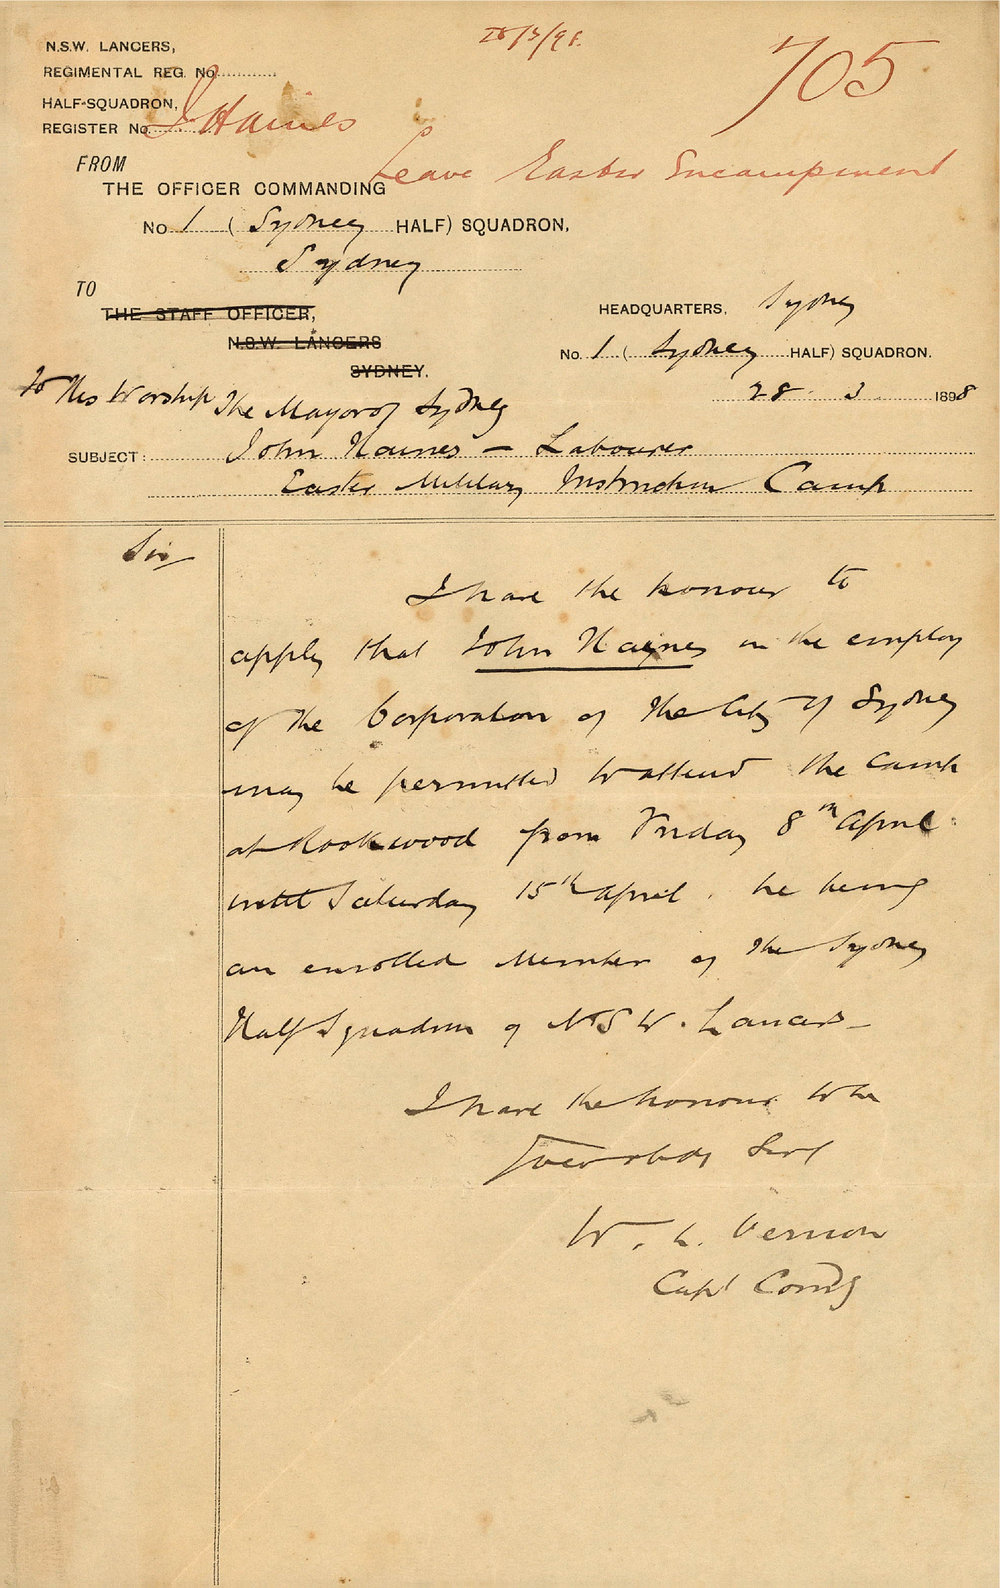 28/3/98.
705
N.S.W. LANCERS,
REGIMENTAL REG. No.
HALF-SQUADRON,
REGISTER No. J. Haines
Leave Easter Encampment
FROM
THE OFFICER COMMANDING
No. 1 (Sydney HALF) SQUADRON,
Sydney
TO
THE STAFF OFFICER,
N.S.W. LANCERS
SYDNEY.
HEADQUARTERS, Sydney
No. 1 (Sydney HALF) SQUADRON.
28 . 3 1898
To His Worship The Mayor of Sydney
SUBJECT: John Haines - Labourer
Easter Military Instruction Camp
Sir
I have the honour to
apply that John Haynes in the employ
of the Corporation of the City of Sydney
may be permitted to attend the Camp
at Rookwood from Friday 8th April
until Saturday 15th April. he being
an enrolled Member of the Sydney
Half Squadron of N S W. Lancers -
I have the honour to be
Your obdt Servt
W. L. Vernon
Capt Comdg